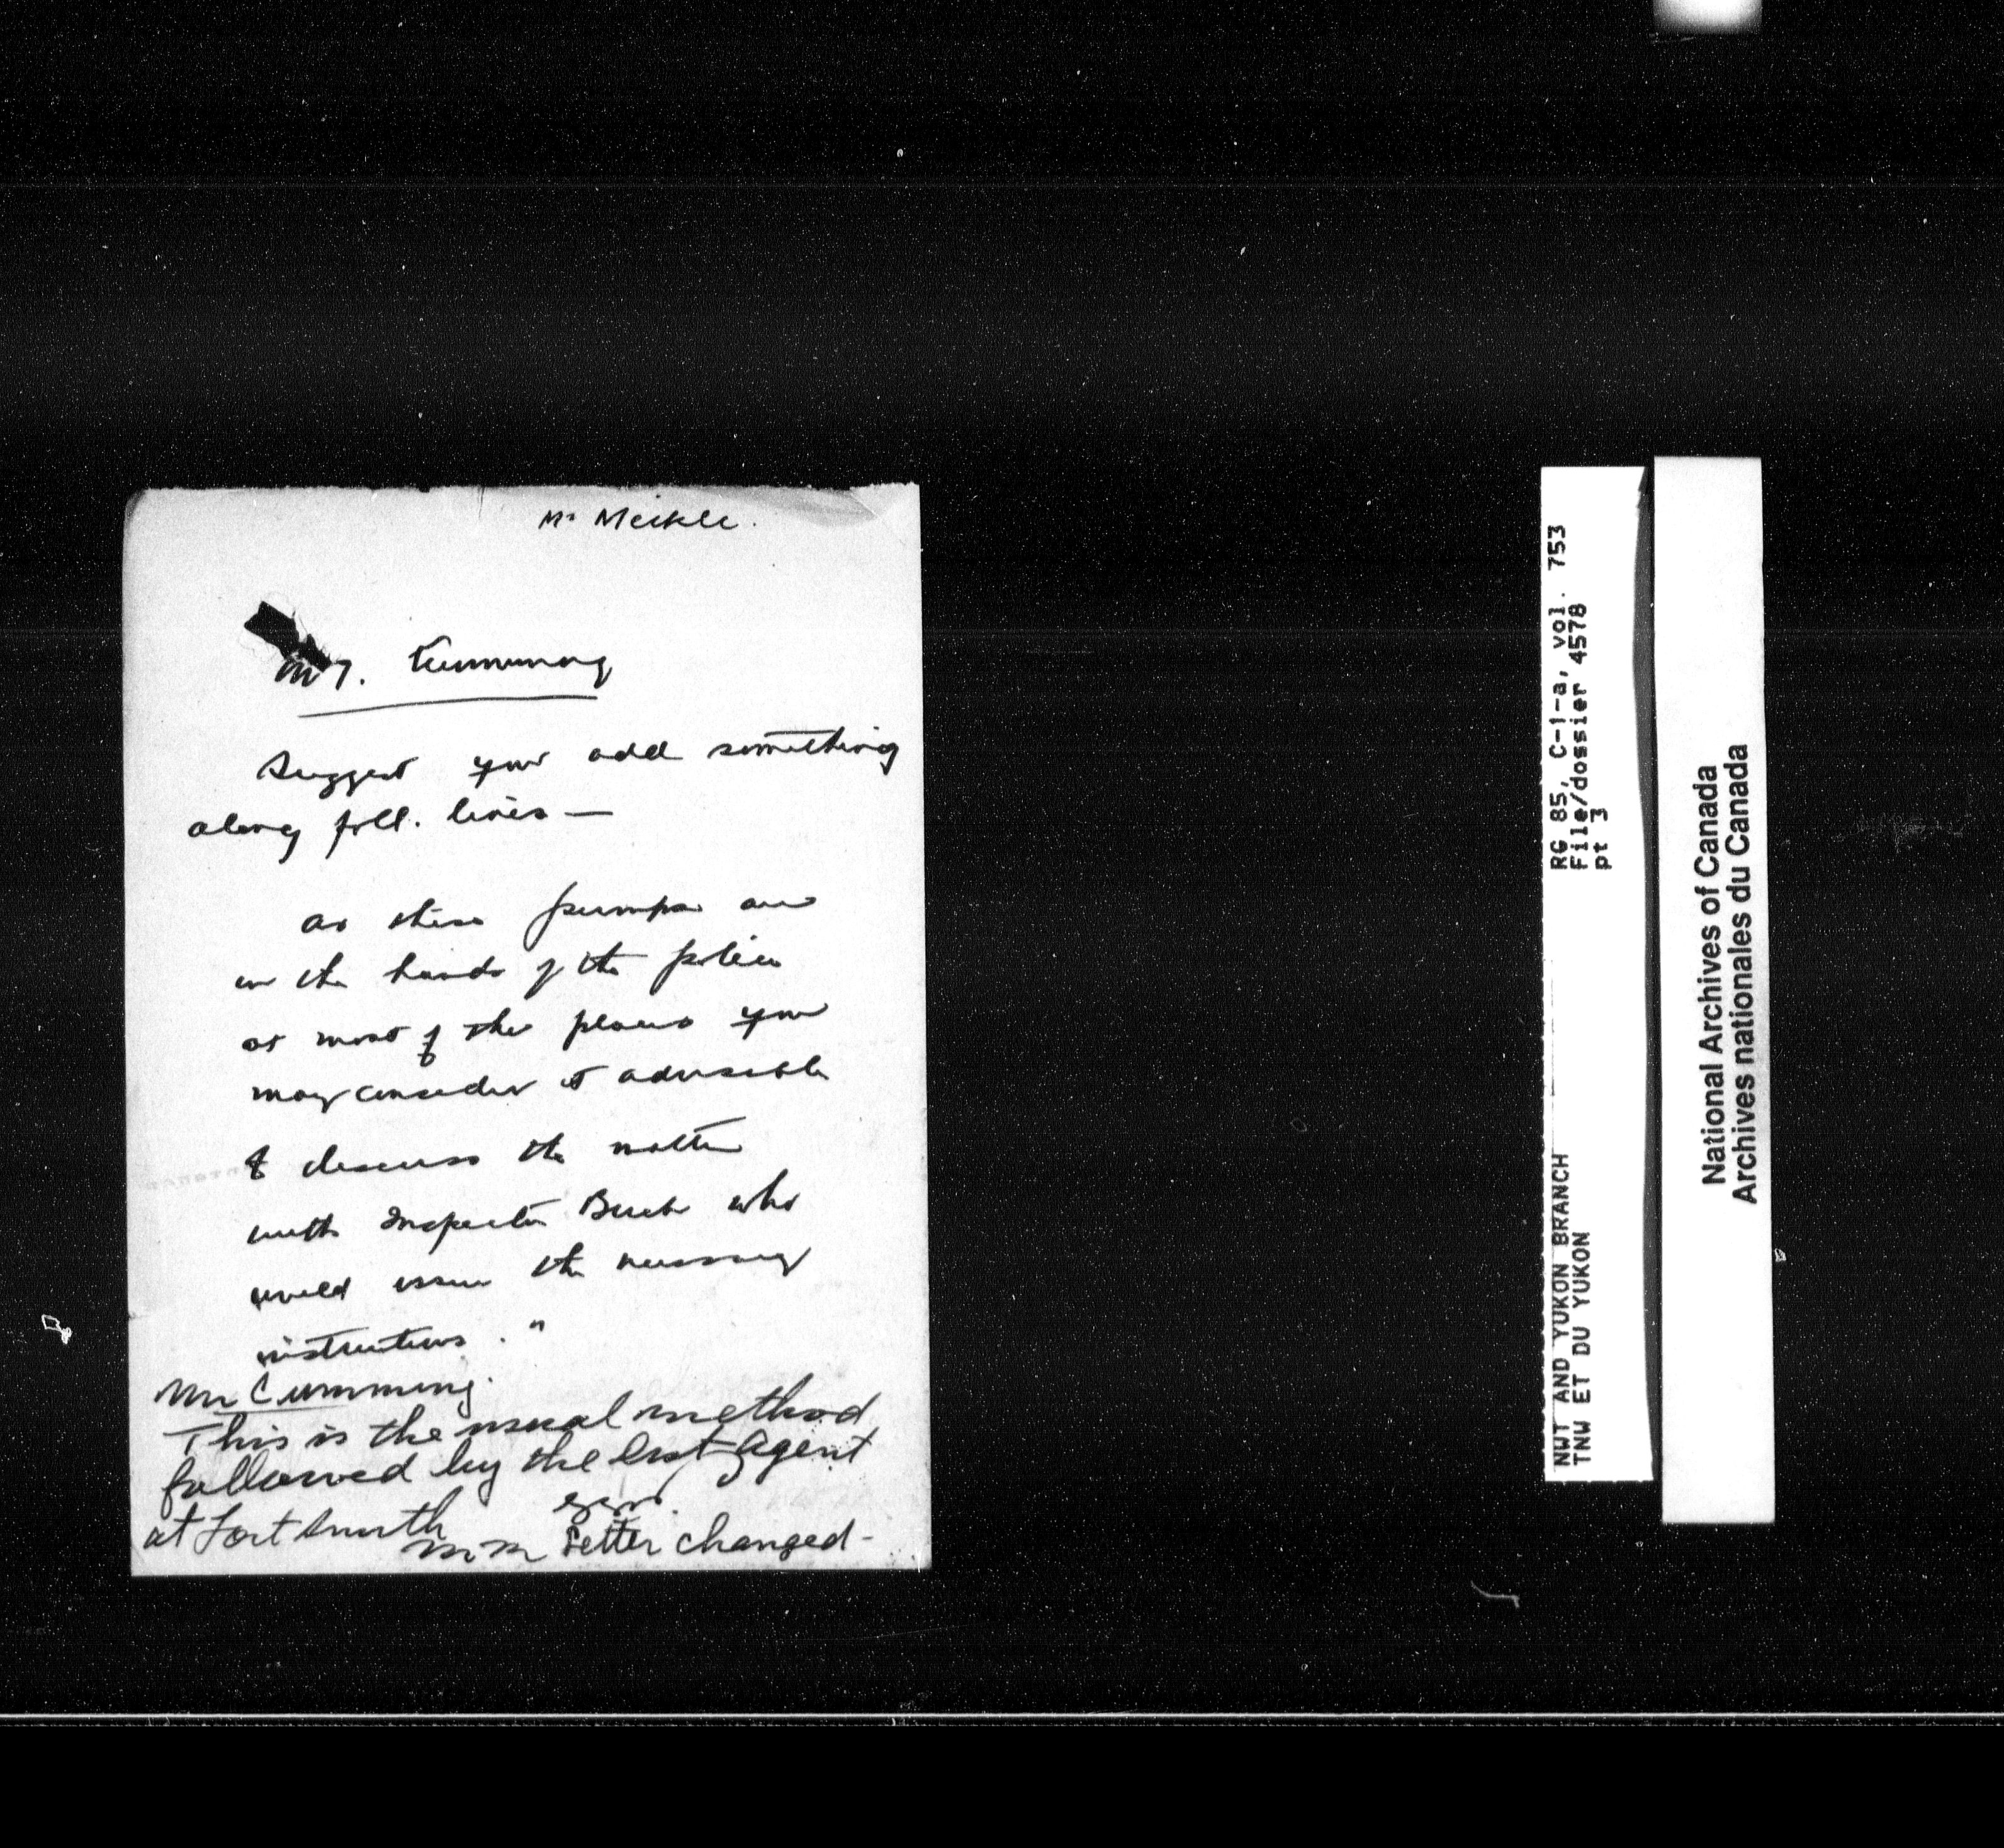 Mr Meikle.
Mr. Cumming
Suggest you add something
along foll. lines —
as these pumps are
in the hands of the police
at most of the places you
may consider it advisable
to discuss the matter
with Inspector who
would issue the necessary
instructions."
Mr Cumming.
This is the usual method
followed by the last Agent
at Fort Smith
M.M. Letter changed -
RG 85, C-1-a, vol. 753
File/dossier 4578
pt 3
NWT AND YUKON BRANCH
TNW ET DU YUKON
National Archives of Canada
Archives nationales du Canada